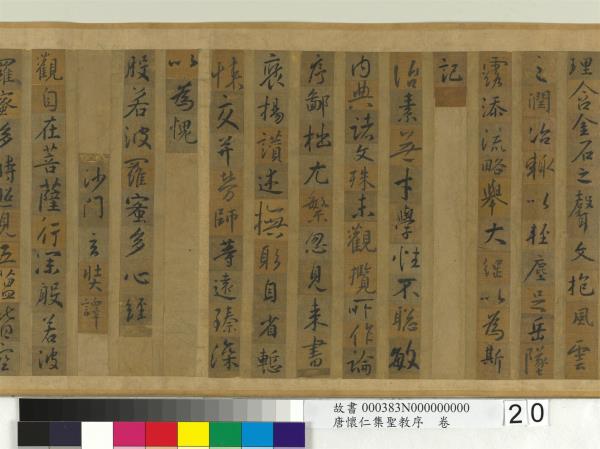 理含金石之聲文抱風雲
之潤治輒以輕塵足岳墜
露添流略舉大綱以為斯
記
治素無才學性不聰敏
內典諸文殊未觀攬所作論
序鄙拙尤繁忽見來書
褒揚讚述撫躬自省慙
悚交并勞師等遠臻深
以為愧
般若波羅蜜多心經
沙門玄奘譯
觀自在菩薩行深般若波
羅蜜多時照見五蘊皆空
故書 000383N000000000
唐懷仁集聖教序 卷
20